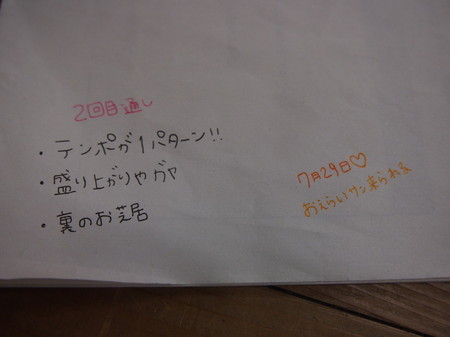 2回目通し
・テンポが1パターン!!
・盛り上がりやガヤ
・裏のお芝居
7月29日♡
おえらいサン来られる